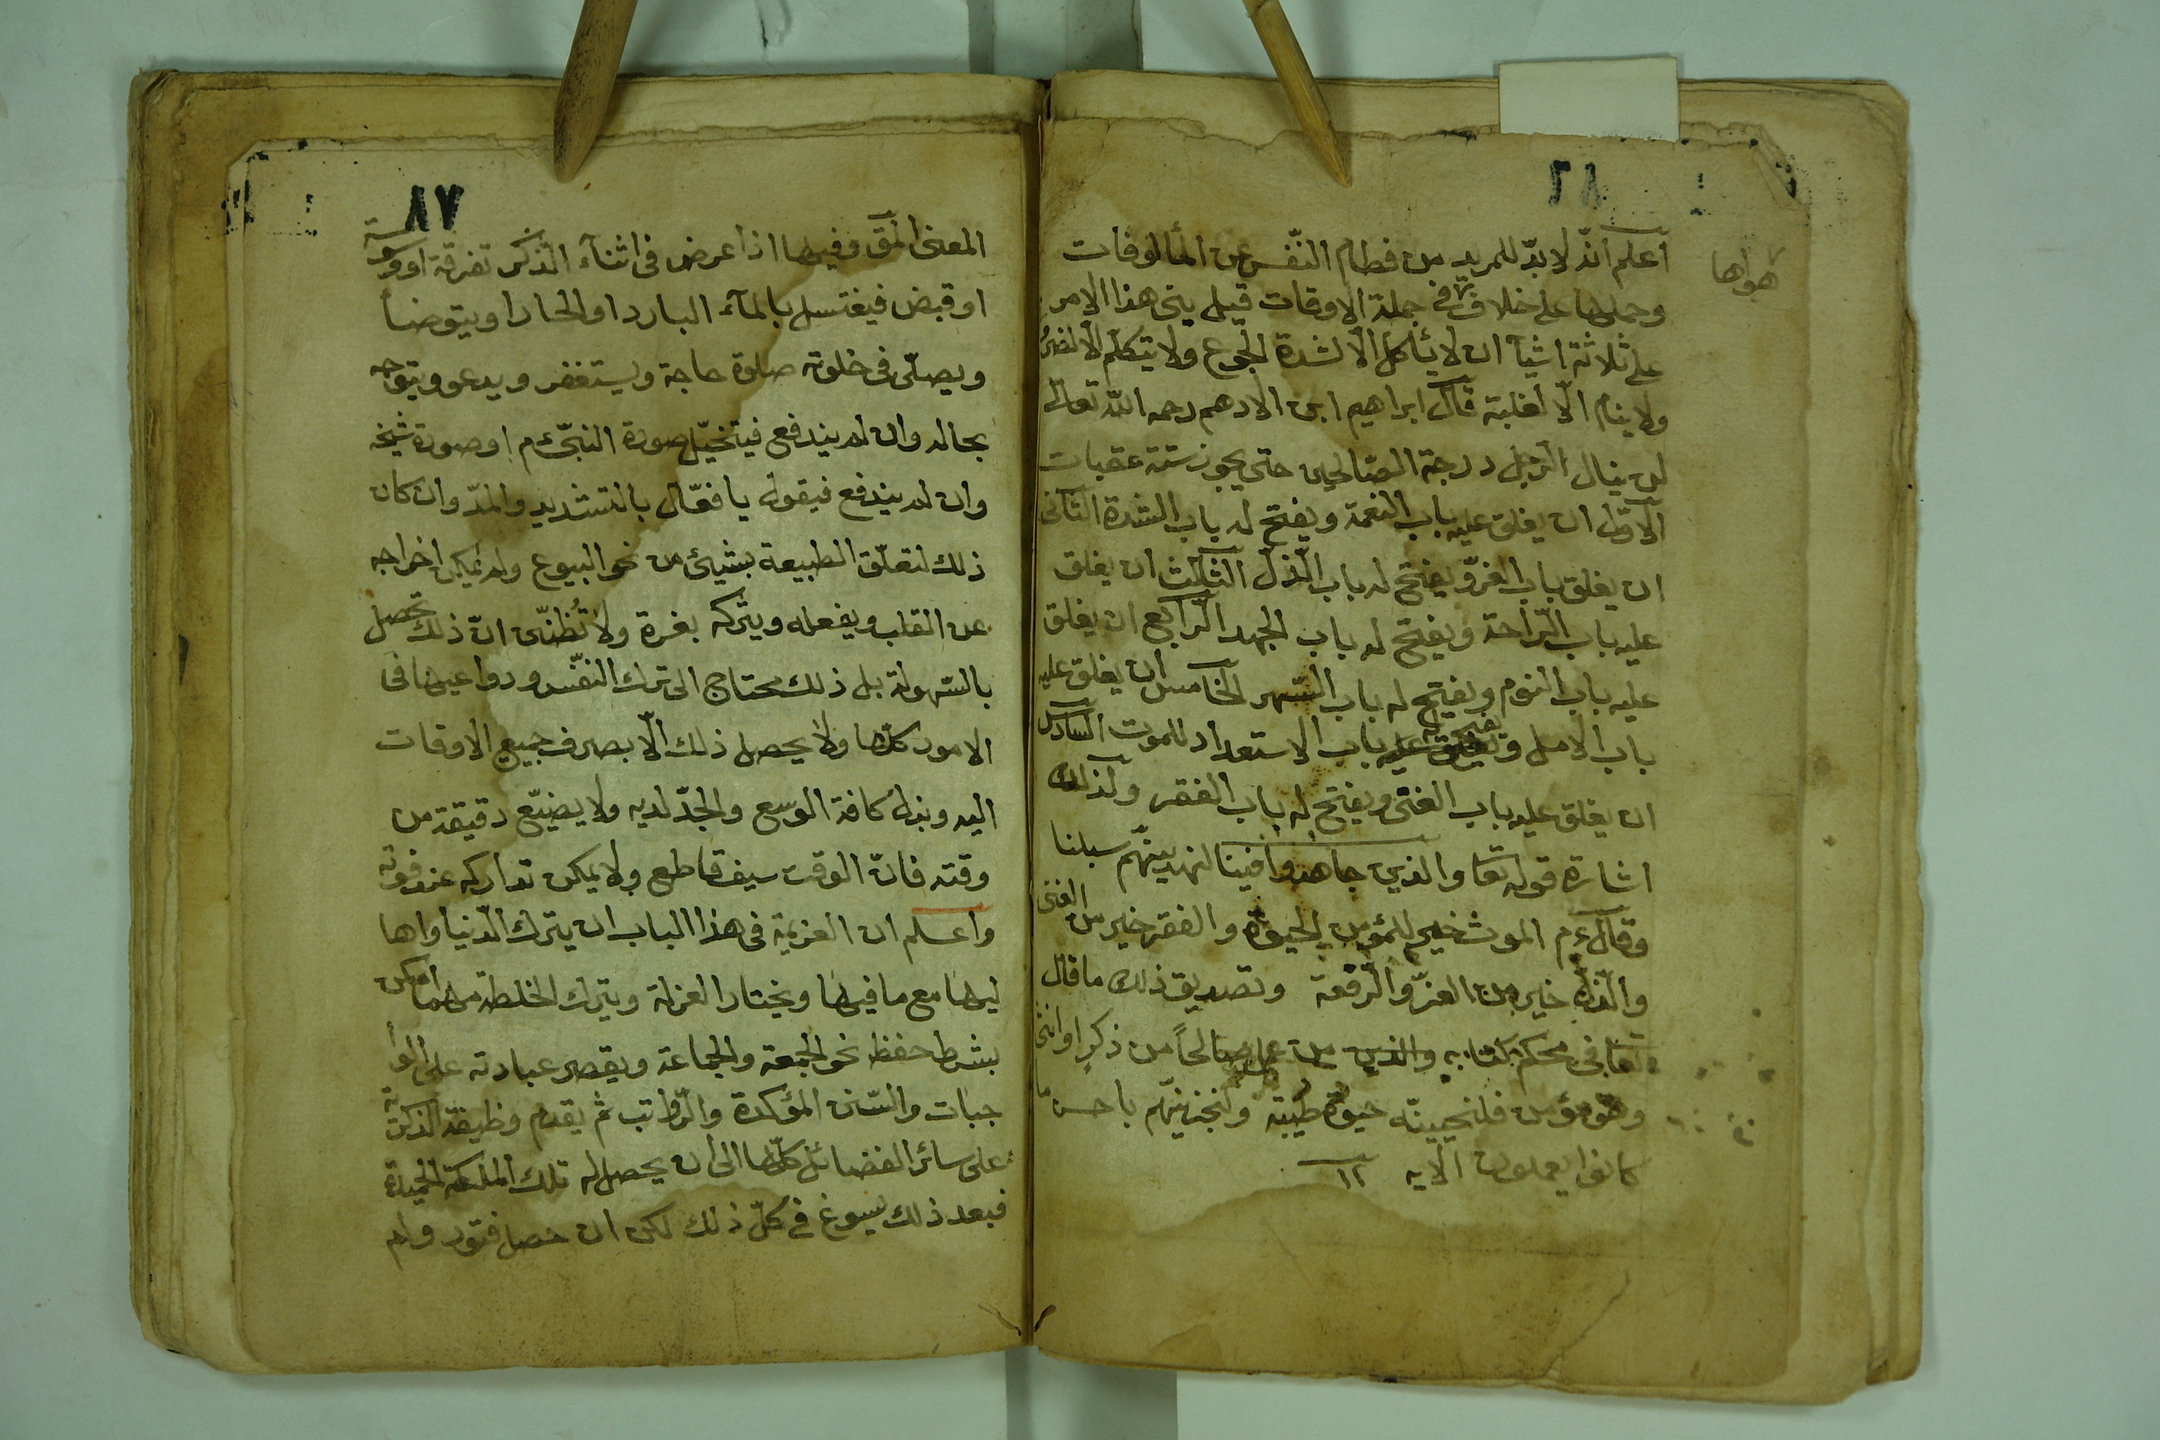 ٢٨
اعلم انّه لا بدّ للمريد من فطام النّفس عن المألوفات
هواها
وحملها على خلاف في جملة الاوقات قيل بنى هذا الامر
على ثلاثة اشيآ ان لا يأكل الّا لشدة الجوع ولا يتكلّم الّا لضر
ولا ينام الّا لغلبة قال ابراهيم ابن الادهم رحمه اللّه تعالى
لن ينال الرّجل درجة الصّالحين حتى يجوز ستة عقبات
الاوّل ان يغلق عليه باب النعمة ويفتح له باب الشدة الثانى
ان يغلق باب العزّ ويفتح له باب الذّل الثالث ان يغلق
عليه باب الرّاحة ويفتح له باب الجهد الرّابع ان يغلق
عليه باب النوم ويفتح له باب السّهر الخامس ان يغلق عليه
باب الامل ويفتح له باب الاستعداد للموت السّادس
ان يغلق عليه باب الغنى ويفتح له باب الفقر ولذلك
اشارة قوله تعا والذين جاهدوا فينا لنهدينّهم سبلنا
وقال ءم الموت خير للمؤمن الحيوة والفقر خير من الغنى
والذّل خير من العزّ والرّفعة وتصديق ذلك ما قال
تعا فى محكم كتابه والذين من عمل صالحاً من ذكر او انثى
وهو مؤمن فلنحيينّه حيوة طيّبة ولنجزينّهم باحسن ما
كانوا يعملون الآيه ١٢
٨٧
المعنى الحق وفيها اذا عرض فى اثنآء الذّكر تفرقة او وسوسة
او قبض فيغتسل بالمآء البارد او الحار او يتوضأ
ويصلّى فى خلوته صلوة حاجة ويستغفر ويدعو ويتوجه
بحاله وان لم يندفع فيتخيّل صورة النبىّ ءم او صورة شيخه
وان لم يندفع فيقول يا فعّال بالتشديد والمدّ وان كان
ذلك لتعلّق الطبيعة بشيئ من نحو البيوع ولم يمكن اخراجه
عن القلب ويفعله ويتركه بغرة ولا تظنّن انّ ذلك تحصل
بالسّهولة بل ذلك محتاج الى ترك النفّس ودواعيها فى
الامور كلّها ولا يحصل ذلك الّا بصرف جميع الاوقات
اليه وبذل كافة الوسع والجدّ لديه ولا يضيّع دقيقة من
وقته فانّ الوقت سيف قاطع ولا يمكن تداركه عند فوته
واعلم ان العزيمة فى هذا الباب ان يترك الدّنيا واها
ليها مع ما فيها ويختار العزلة ويترك الخلطة مهما امكن
بشرط حفظ نحو الجمعة والجماعة ويقصر عبادته على الوا
جبات والسّنن المؤكدة والرّواتب ثم يقدم وظيفة الذكريّة
على سائر الفضائل كلّها الى ان يحصل له تلك الملكة الحميدة
فبعد ذلك يسوغ فى كلّ ذلك لكن ان حصل فتور ولم